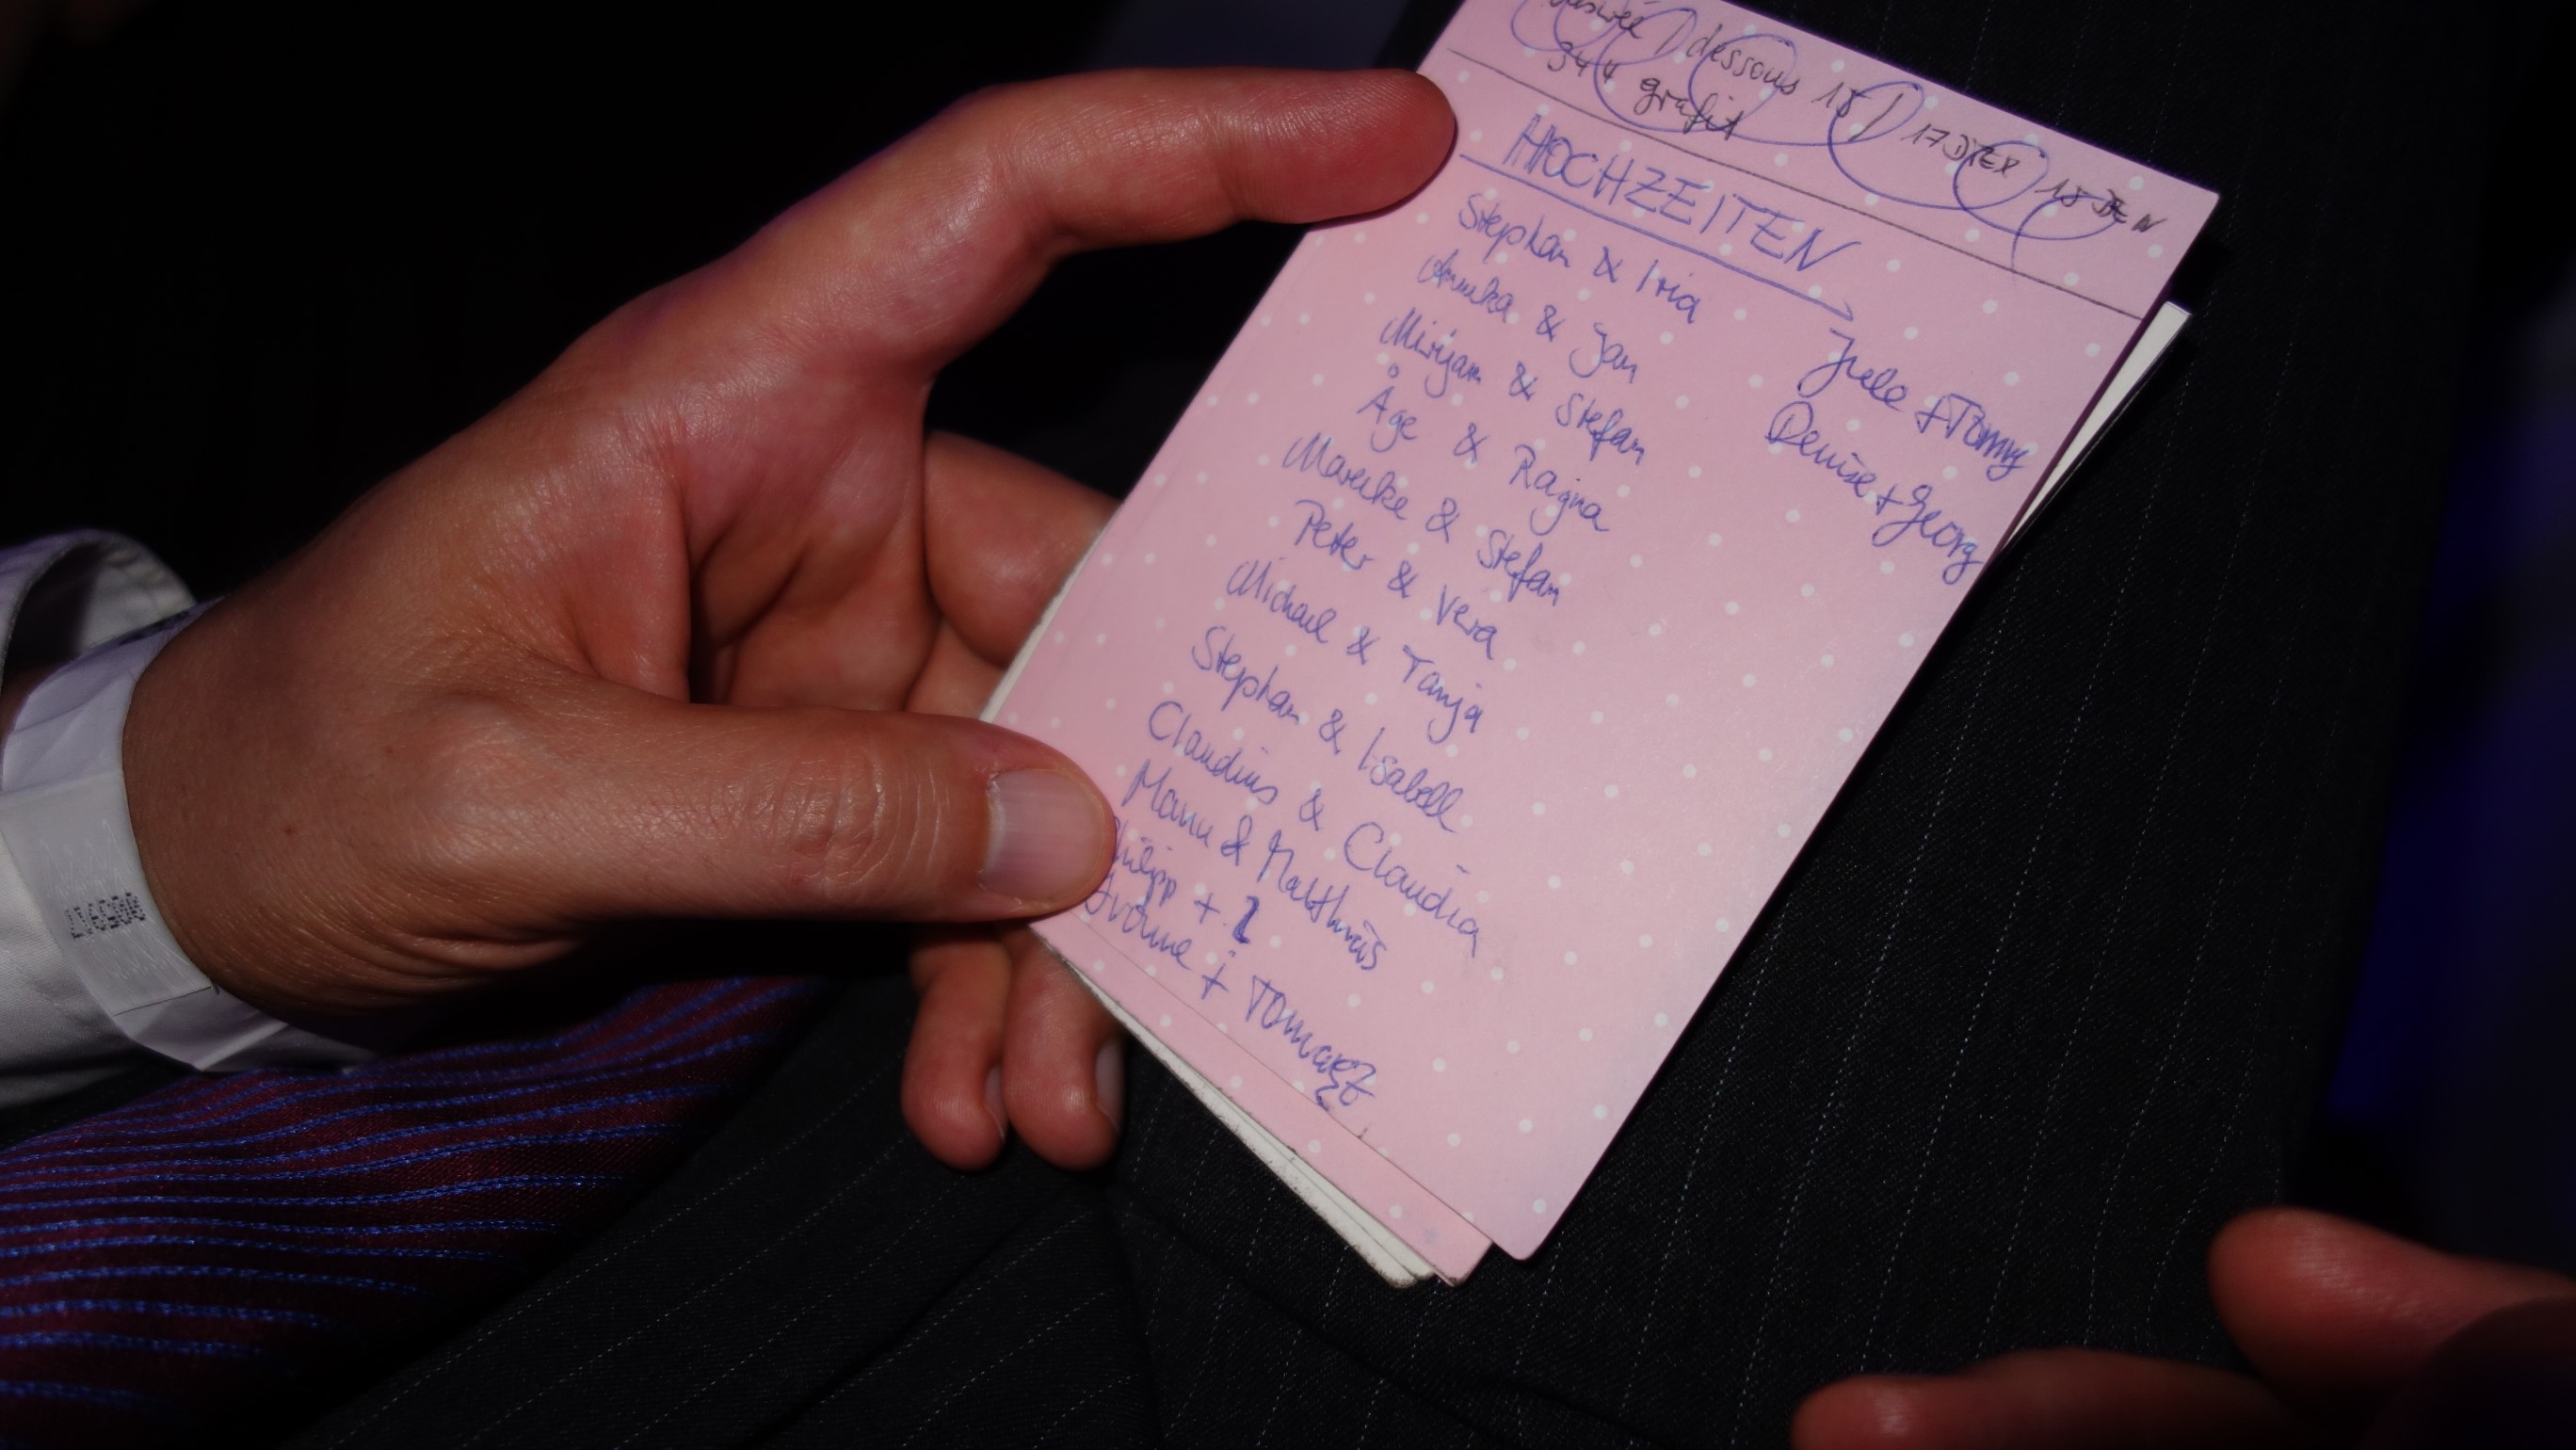 dessous 15 | 17 DTEX 15 DEN
344 grafit
HOCHZEITEN
Stephan & Iria
Annika & Jan
Mirijam & Stefan
Åge & Ragna
Mareike & Stefan
Peter & Vera
Michael & Tanja
Stephan & Isabell
Claudius & Claudia
Manu & Matthias
Philipp + 1
Yvonne +
Jule + Tommy
Denise + Georg